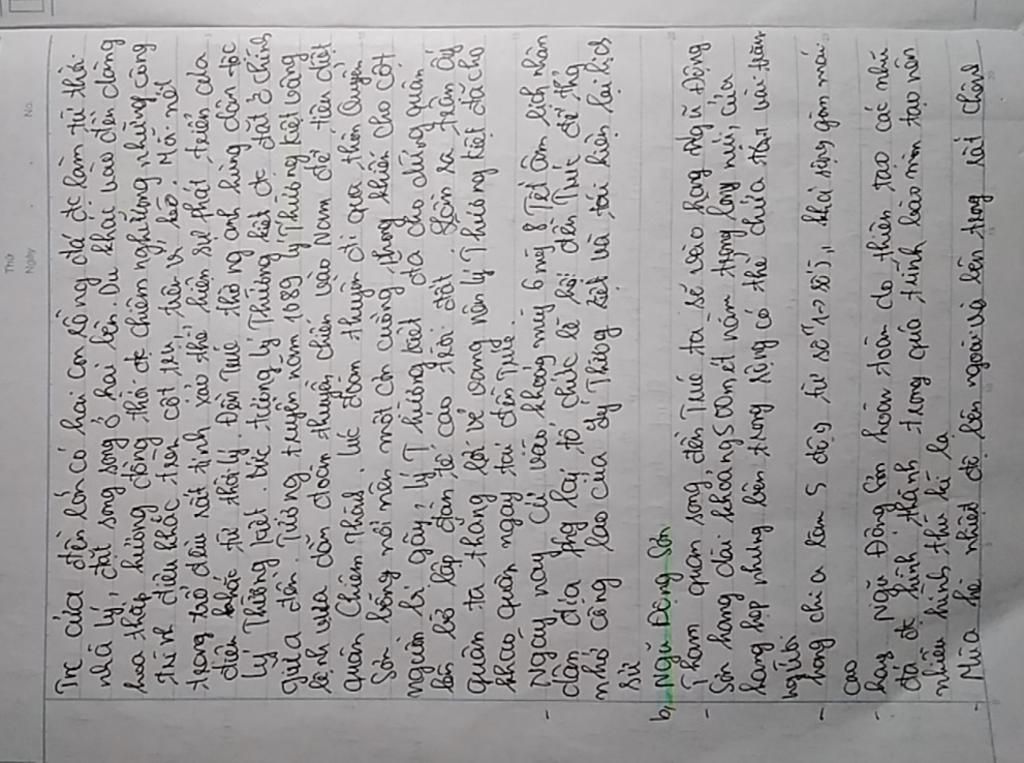 Thứ
Ngày
No.
Trc của đền lớn có hai con rồng đá đc làm từ thời
nhà lý, đặt song song ở hai bên. Du khác vào đền dâng
hoa thắp hương đồng thời đc chiêm ngưỡng những công
trình điêu khắc trên cột trụ, trên vì kèo. Mỗi nét
trạng trổ đều rất tinh xảo thể hiện sự phát triển của
điêu khắc từ thời lý. Đền Trúc thờ ng anh hùng dân tộc
Lý Thường kiệt. bức tượng lý Thường kiệt đc đặt ở chính
giữa đền. Tương truyền năm 1089 lý Thường kiệt vâng
lệnh vua dẫn đoàn thuyền chiến vào Nam để tiến diệt
quân Chiêm Thành. Lúc đoàn thuyền đi qua thôn Quyển
Sơn bỗng nổi nên một cơn cuồng phong khiến cho cột
người bị gãy, lý Thường kiệt đã cho dừng quân
lên bờ lập đàn tế cáo trời đất. Sần ra trận ấy
quân ta thắng lợi vẻ vang nên lý Thường kiệt đã cho
khao quân ngay tại đền Trúc.
- Ngày nay cứ vào khoảng mùng 6 mùng 8 Tết âm lịch nhân
dân địa phg lại tổ chức lễ hội đền Trúc để thg
nhớ công lao của lý Thường kiệt và tái hiện lại lịch
sử
b, Ngũ Động Sơn
- Tham quan song, đền Trúc ta sẽ vào hang ngũ Động
Sơn hang dài khoảng 500 mét nằm trong lòng núi, cửa
hang hẹp nhưng bên trong rộng có thể chứa tới vài trăm
người
- hang chia làm 5 động từ số "1->số 5", khái rộng gồm mái
cao
- hang Ngũ Động Sơn hoàn toàn do thiên tạo các nhũ
đá đc hình thành trong quá trình bào mòn tạo nên
nhiều hình thù kì lạ
- Mùa hè nhiệt độ bên ngoài và bên trong rất chênh